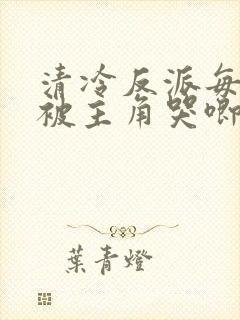 清冷反派每
被主角哭唧
葉青燈